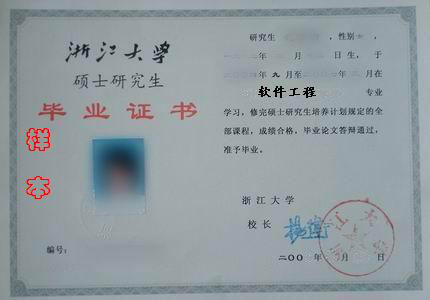 浙江大学
硕士研究生
毕业证书
样本
编号：
研究生 ，性别
生，于
九月至 在
软件工程 专业
学习，修完硕士研究生培养计划规定的全
部课程，成绩合格，毕业论文答辩通过，
准予毕业。
浙江大学
校长
二〇〇 年 月 日